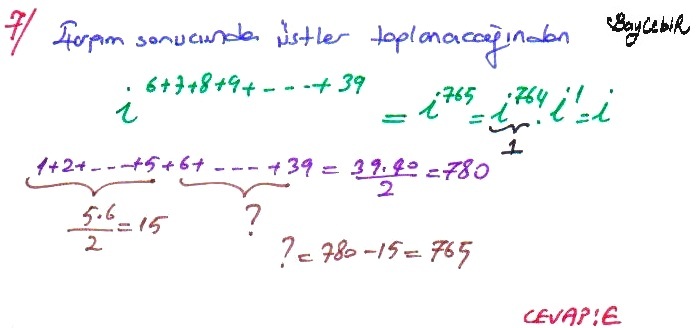 7/ Çarpım sonucunda üstler toplanacağından
BayCebir
i^6+7+8+9+-----+39 = i^765 = i^764 . i^1 = i
1
1+2+---+5+6+-----+39 = 39.40/2 = 780
5.6/2 = 15 ?
? = 780-15 = 765
CEVAP:E